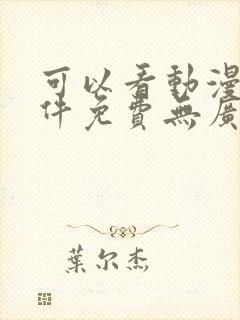 可以看動漫
件免費無廣
葉尔杰